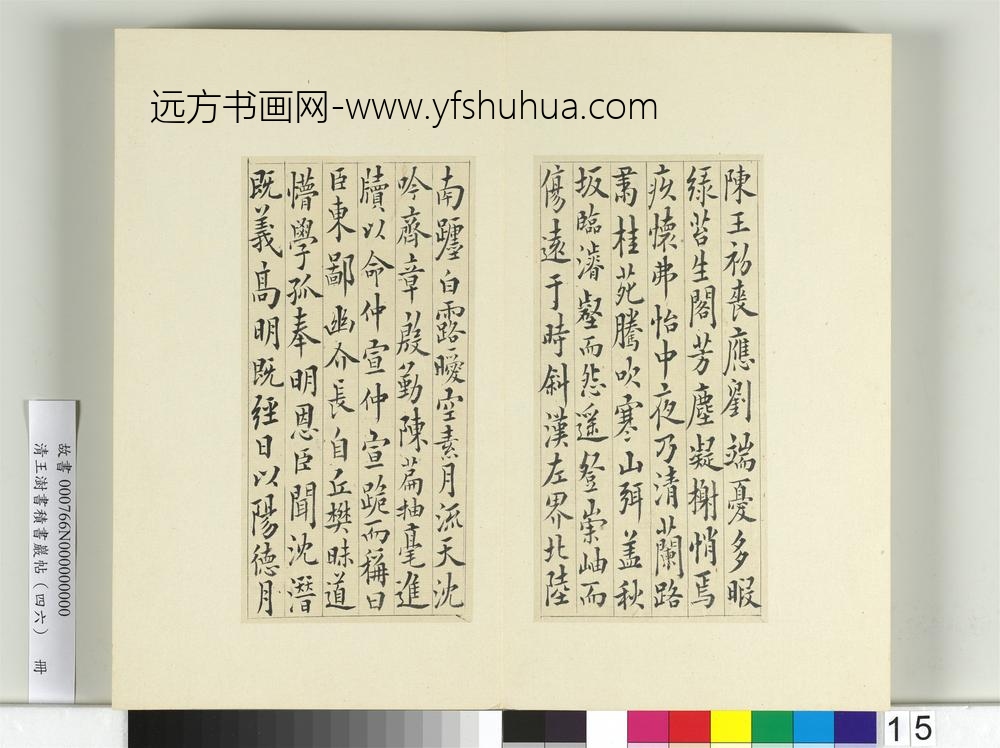 远方书画网-www.yfshuhua.com
陳王初喪應劉端憂多暇
綠苔生閣芳塵凝榭悄焉
疚懷弗怡中夜乃清蘭路
肅桂苑騰吹寒山弭蓋秋
坂臨濬壑而怨遙登崇岫而
傷遠于時斜漢左界北陸
南躔白露曖空素月流天沈
吟齊章殷勤陳篇抽毫進
牘以命仲宣仲宣跪而稱曰
臣東鄙幽介長自丘樊昧道
懵學孤奉明恩臣聞沈潛
既義高明既經日以陽德月
故書 000766N000000000
清王澍書積書巖帖(四六) 冊
15